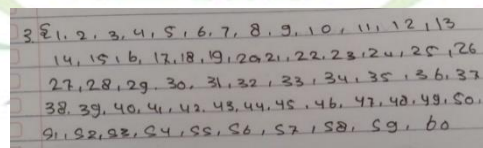 3. { 1, 2, 3, 4, 5, 6, 7, 8, 9, 10, 11, 12, 13
14, 15, 16, 17, 18, 19, 20, 21, 22, 23, 24, 25, 26
27, 28, 29. 30, 31, 32, 33, 34, 35, 36, 37
38. 39, 40, 41, 42. 43, 44, 45, 46, 47, 48, 49, 50.
51, 52, 53, 54, 55, 56, 57, 58, 59, 60